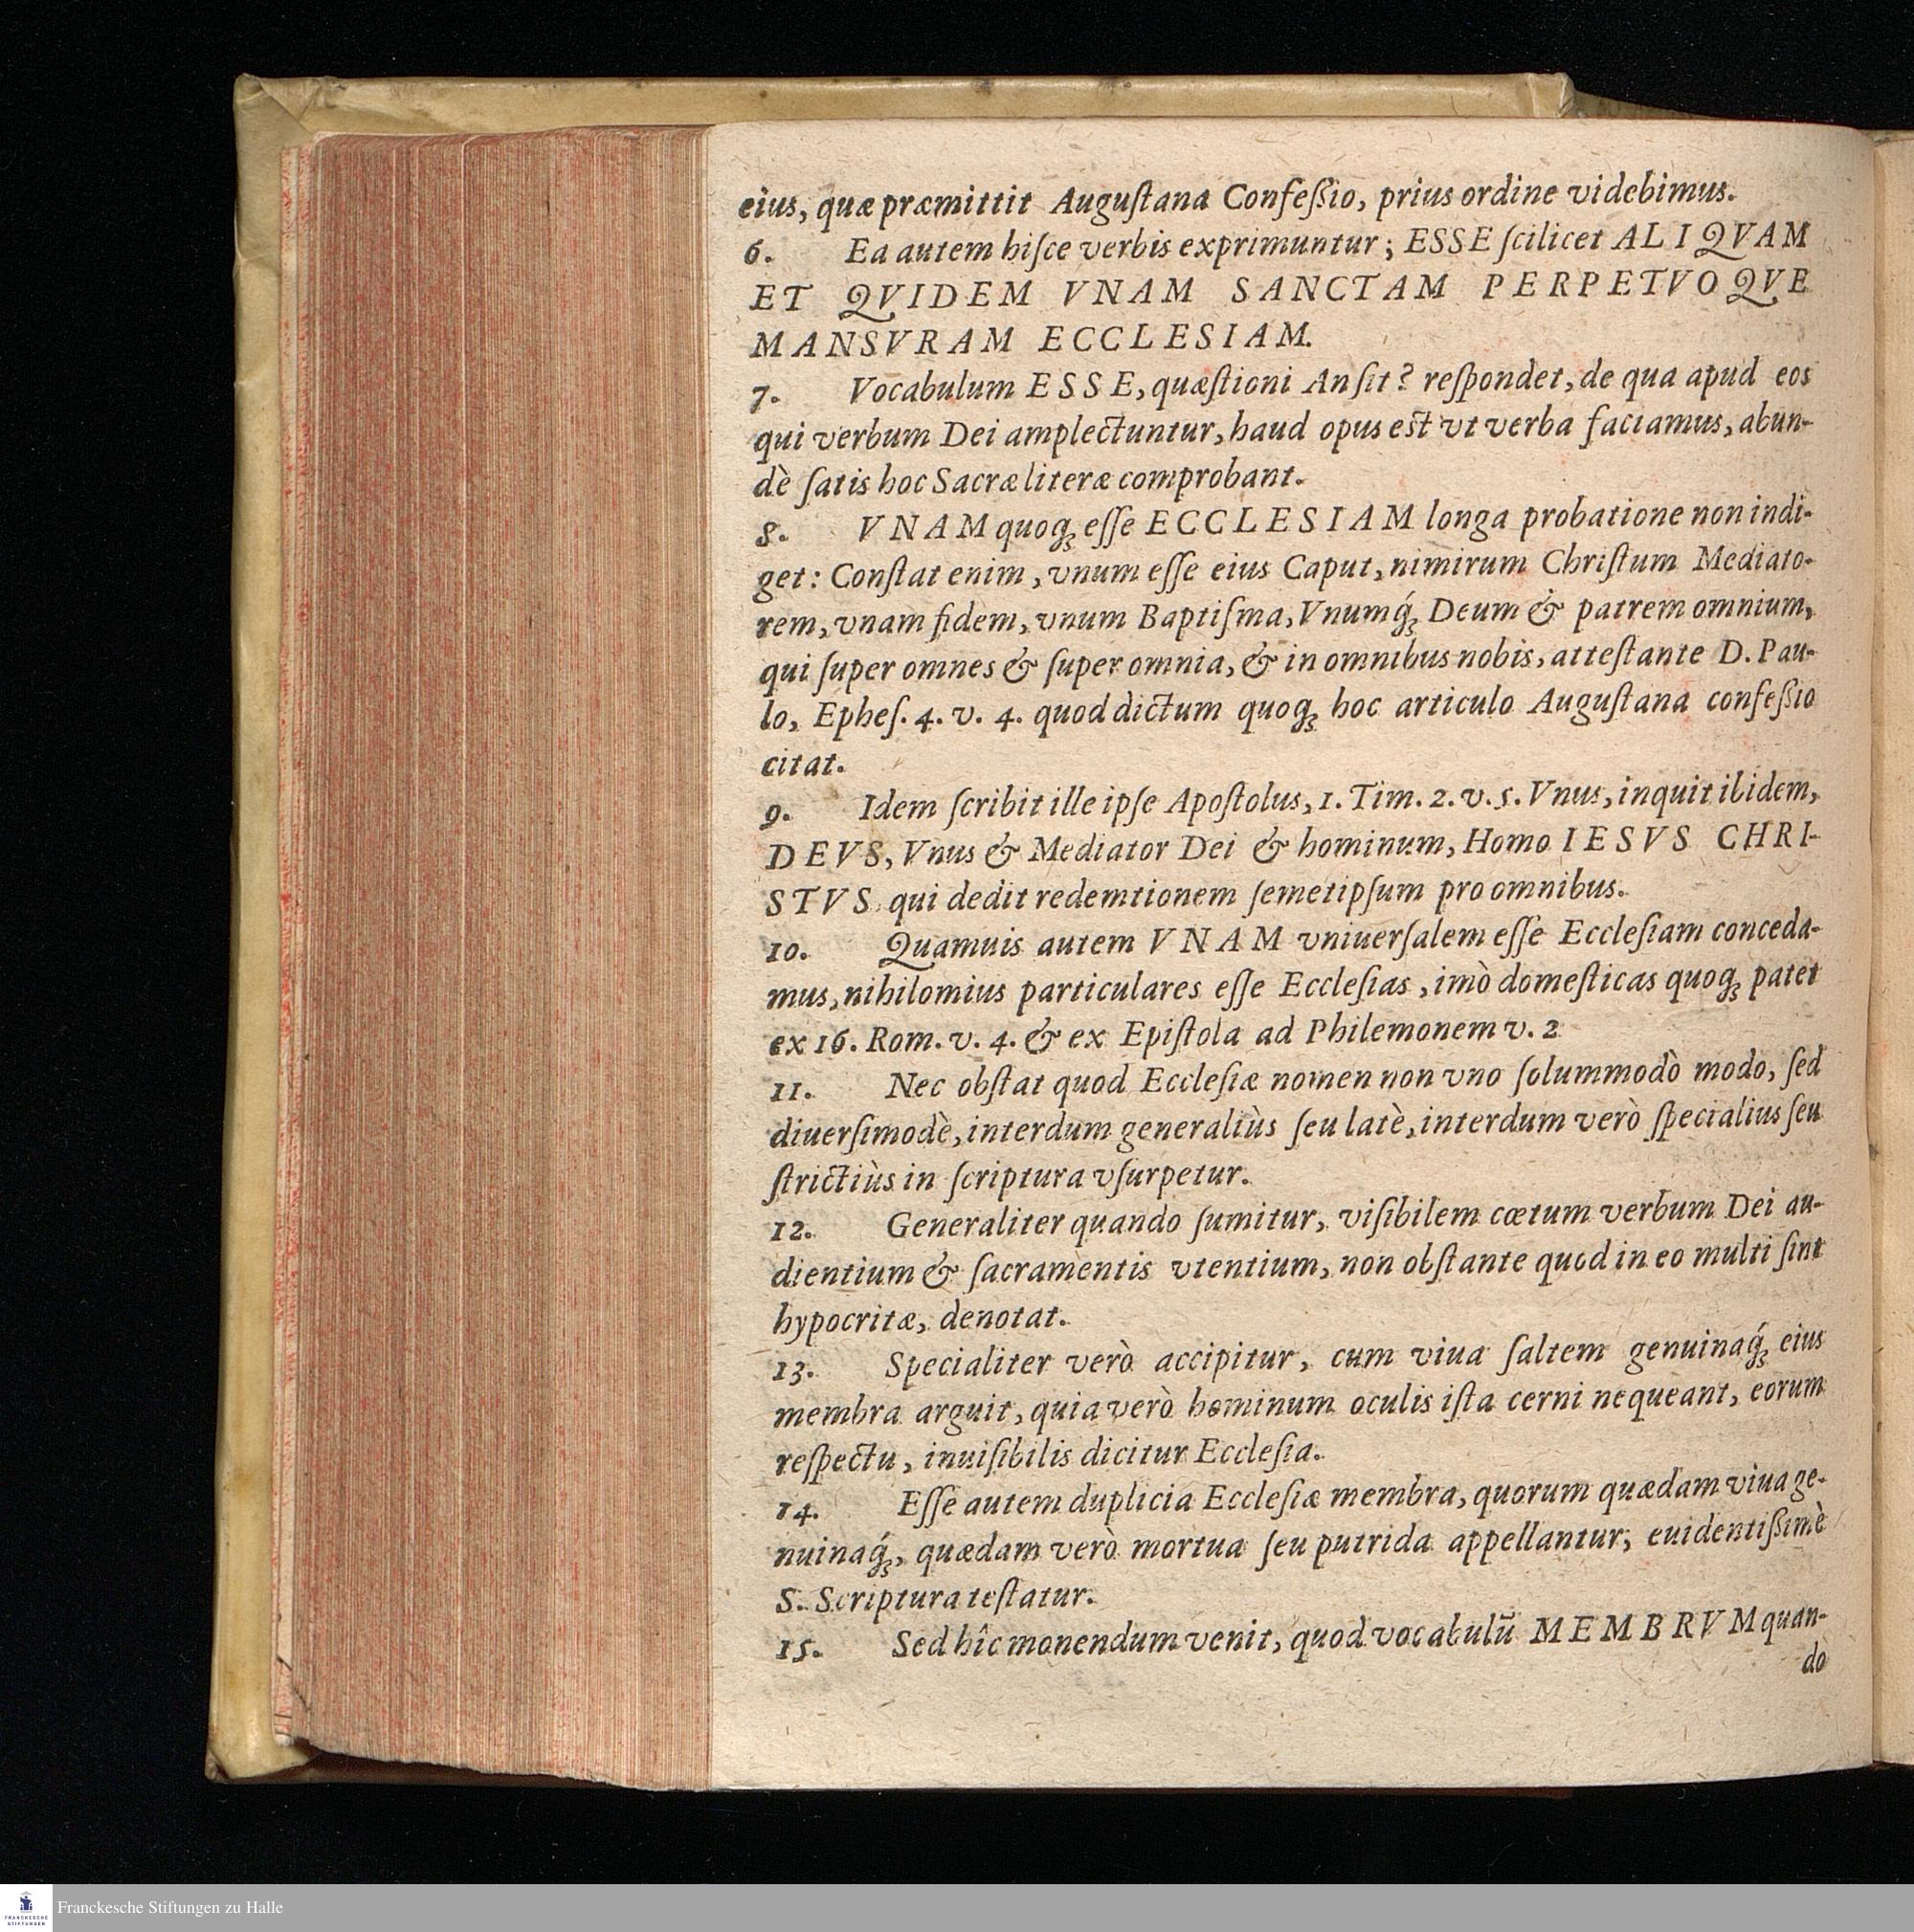 eius, quæ præmittit Auguſtana Confeßio, prius ordine videbimus.
6. Ea autem hiſce verbis exprimuntur; ESSE ſcilicet ALIQVAM
ET QVIDEM VNAM SANCTAM PERPETVOQVE
MANSVRAM ECCLESIAM.
7. Vocabulum ESSE, quæſtioni An ſit? reſpondet, de qua apud eos
qui verbum Dei amplectuntur, haud opus est vt verba faciamus, abun-
dè ſatis hoc Sacræ literæ comprobant.
8. VNAM quoq; eſſe ECCLESIAM longa probatione non indi-
get: Conſtat enim, vnum eſſe eius Caput, nimirum Chriſtum Mediato-
rem, vnam fidem, vnum Baptiſma, Vnumq́; Deum & patrem omnium,
qui ſuper omnes & ſuper omnia, & in omnibus nobis, atteſtante D. Pau-
lo, Epheſ. 4. v. 4. quod dictum quoq; hoc articulo Auguſtana confeßio
citat.
9. Idem ſcribit ille ipſe Apoſtolus, 1. Tim. 2. v. 5. Vnus, inquit ibidem,
DEVS, Vnus & Mediator Dei & hominum, Homo IESVS CHRI-
STVS qui dedit redemtionem ſemetipſum pro omnibus.
10. Quamuis autem VNAM vniuerſalem eſſe Eccleſiam conceda-
mus, nihilomius particulares eſſe Eccleſias, imò domeſticas quoq; patet
ex 16. Rom. v. 4. & ex Epiſtola ad Philemonem v. 2
11. Nec obſtat quod Eccleſiæ nomen non vno ſolummodò modo, ſed
diuerſimodè, interdum generaliùs ſeu latè, interdum verò ſpecialius ſeu
ſtrictiùs in ſcriptura vſurpetur.
12. Generaliter quando ſumitur, viſibilem cœtum verbum Dei au-
dientium & ſacramentis vtentium, non obſtante quod in eo multi ſint
hypocritæ, denotat.
13. Specialiter verò accipitur, cum viua ſaltem genuinaq́; eius
membra arguit, quia verò hominum oculis iſta cerni nequeant, eorum
reſpectu, inuiſibilis dicitur Eccleſia.
14. Eſſe autem duplicia Eccleſiæ membra, quorum quædam viua ge-
nuinaq́;, quædam verò mortua ſeu putrida appellantur; euidentißimè
S. Scriptura teſtatur.
15. Sed hîc monendum venit, quod vocabulũ MEMBRVM quan-
do
Franckesche Stiftungen zu Halle
FRANCKESCHE
STIFTUNGEN